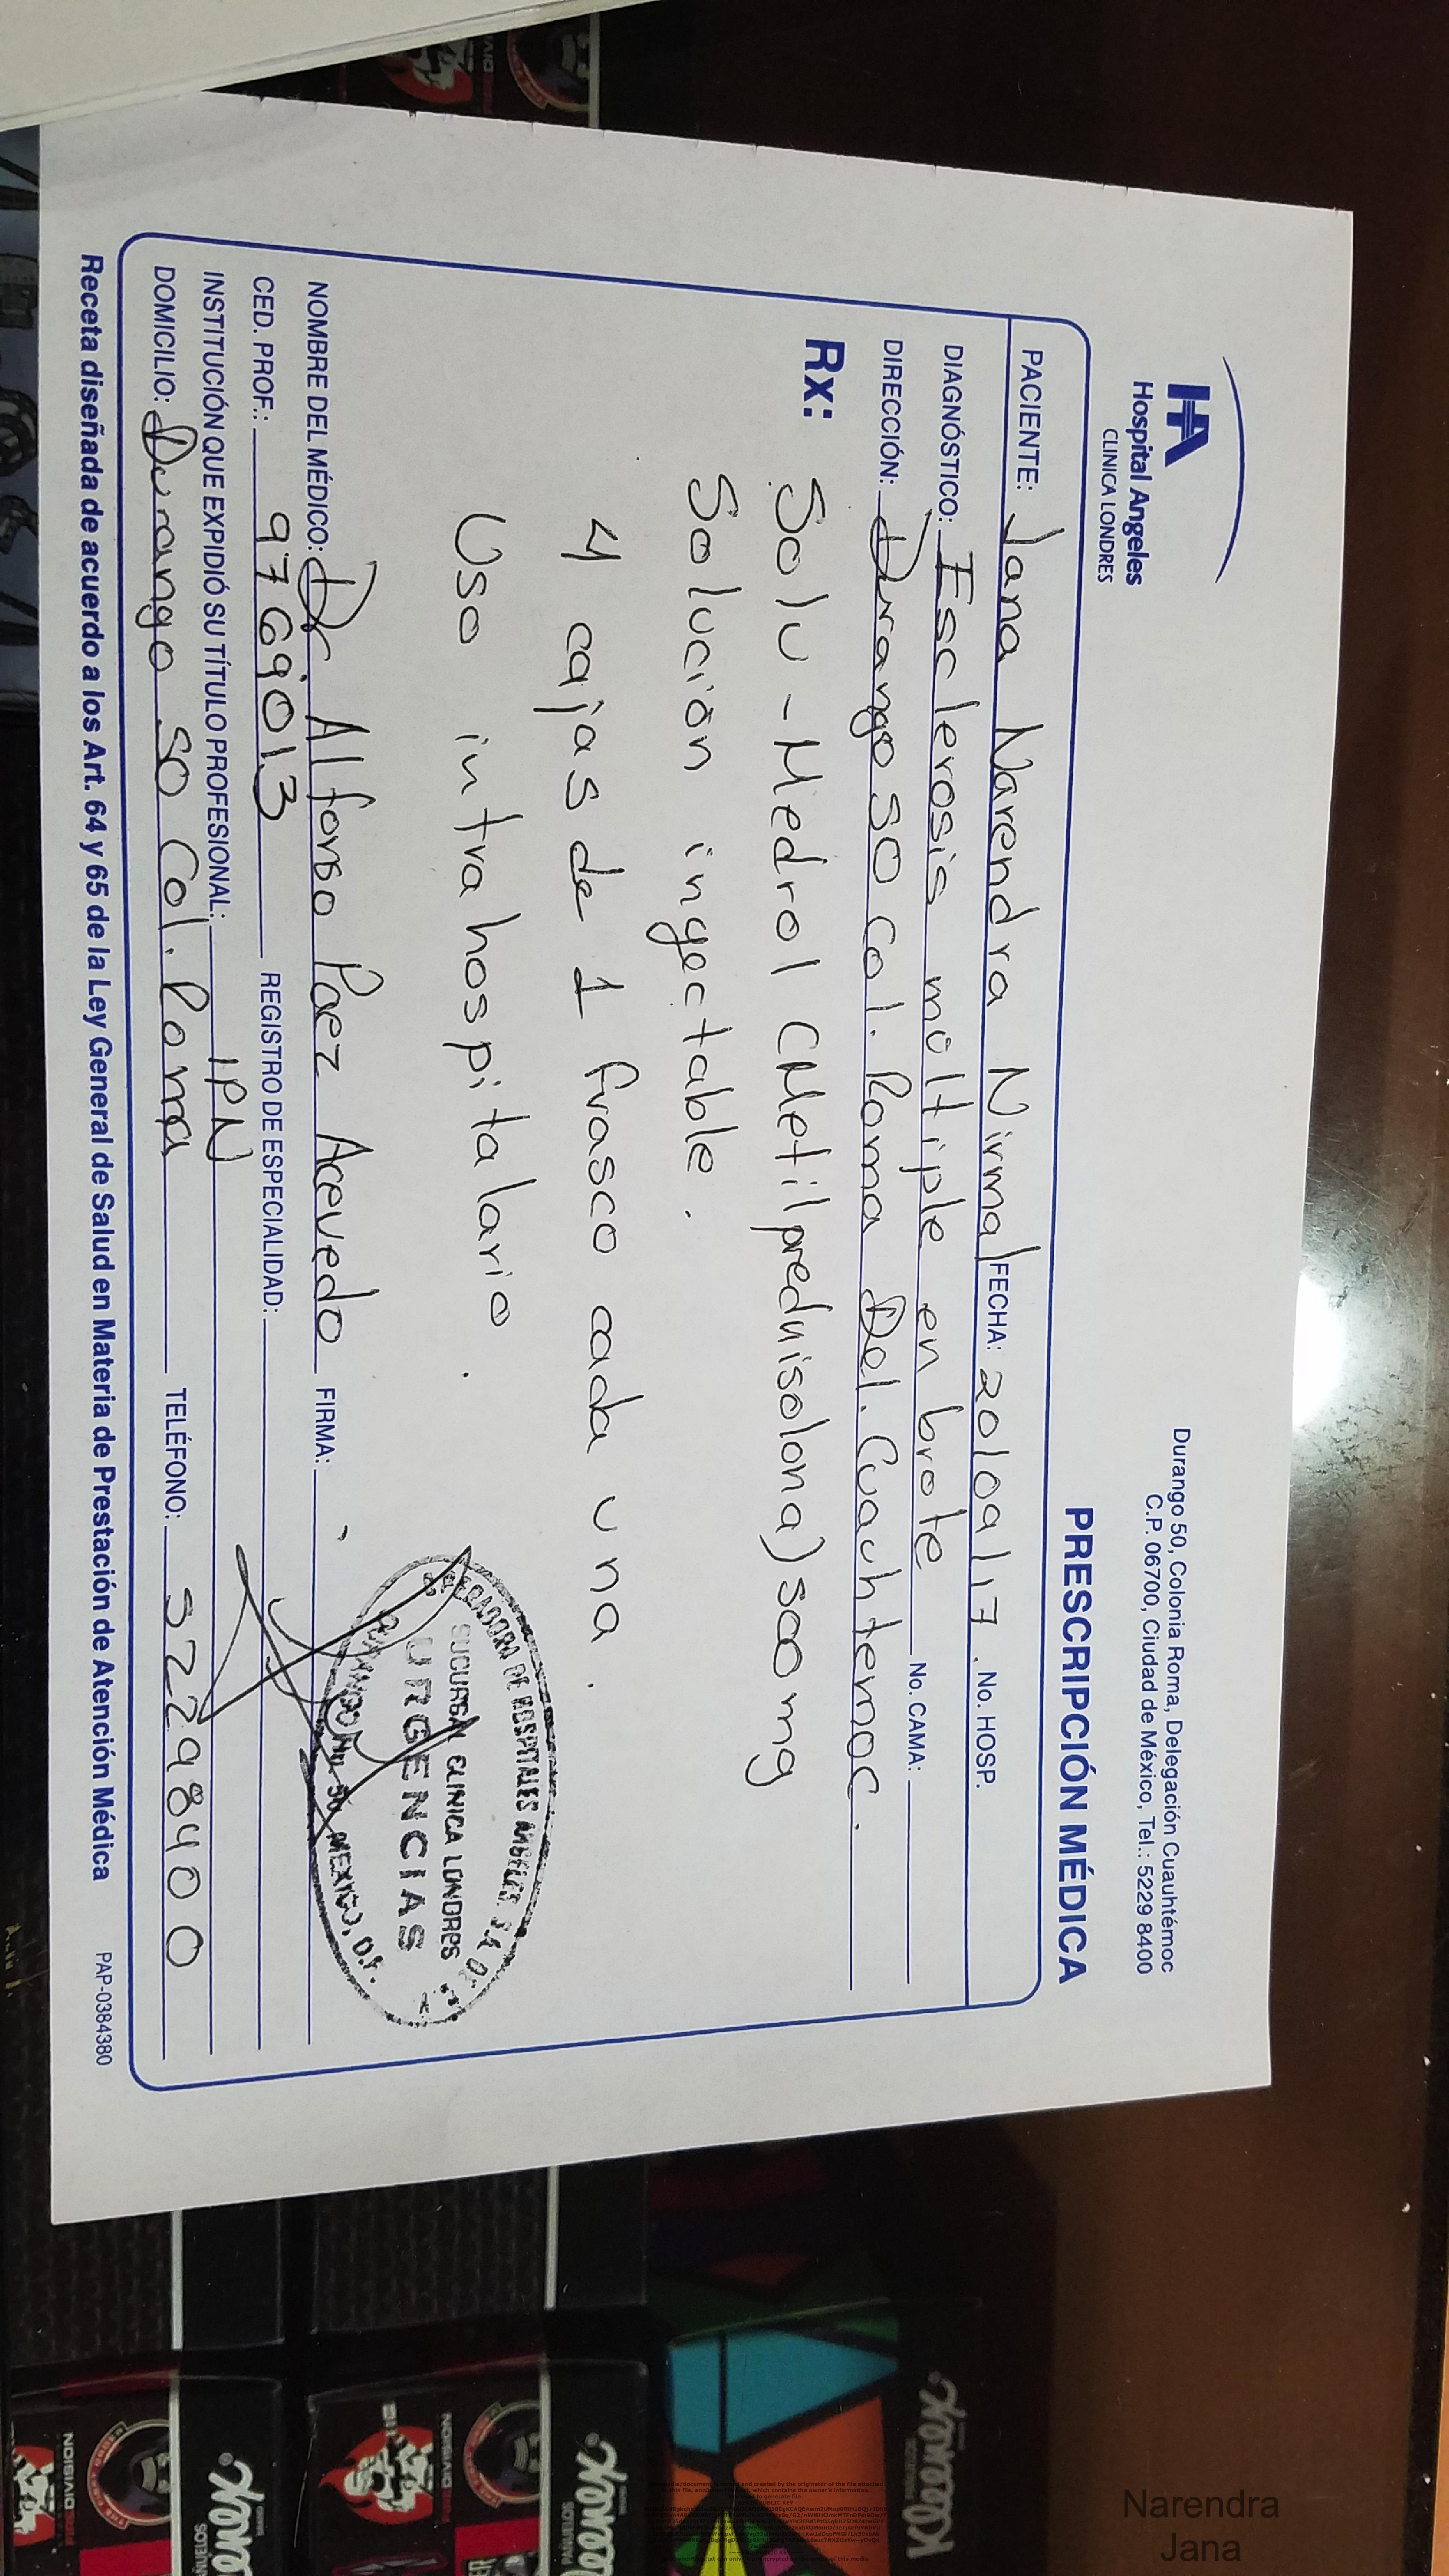 HA
Hospital Angeles
CLINICA LONDRES
Durango 50, Colonia Roma, Delegación Cuauhtémoc
C.P. 06700, Ciudad de México, Tel.: 5229 8400
PRESCRIPCIÓN MÉDICA
PACIENTE: Jana Narendra Nirmal FECHA: 20/09/17. No. HOSP.
DIAGNÓSTICO: Esclerosis múltiple en brote No. CAMA:
DIRECCIÓN: Durango 50 Col. Roma Del. Cuauhtemoc.
Rx: Solu-Medrol (Metilprednisolona) 500 mg
Solución ingectable.
4 cajas de 1 frasco cada una.
Uso intrahospitalario.
NOMBRE DEL MÉDICO: Dr Alfonso Paez Acevedo FIRMA:
CED. PROF.: 9769013 REGISTRO DE ESPECIALIDAD:
INSTITUCIÓN QUE EXPIDIÓ SU TÍTULO PROFESIONAL: IPN
DOMICILIO: Durango 50 Col. Roma TELÉFONO: 52298400
OPERADORA DE HOSPITALES ANGELES S.A. DE
SUCURSAL CLINICA LONDRES
URGENCIAS
MEXICO, D.F.
Receta diseñada de acuerdo a los Art. 64 y 65 de la Ley General de Salud en Materia de Prestación de Atención Médica PAP-0384380
DIVISION
Narendra
Jana